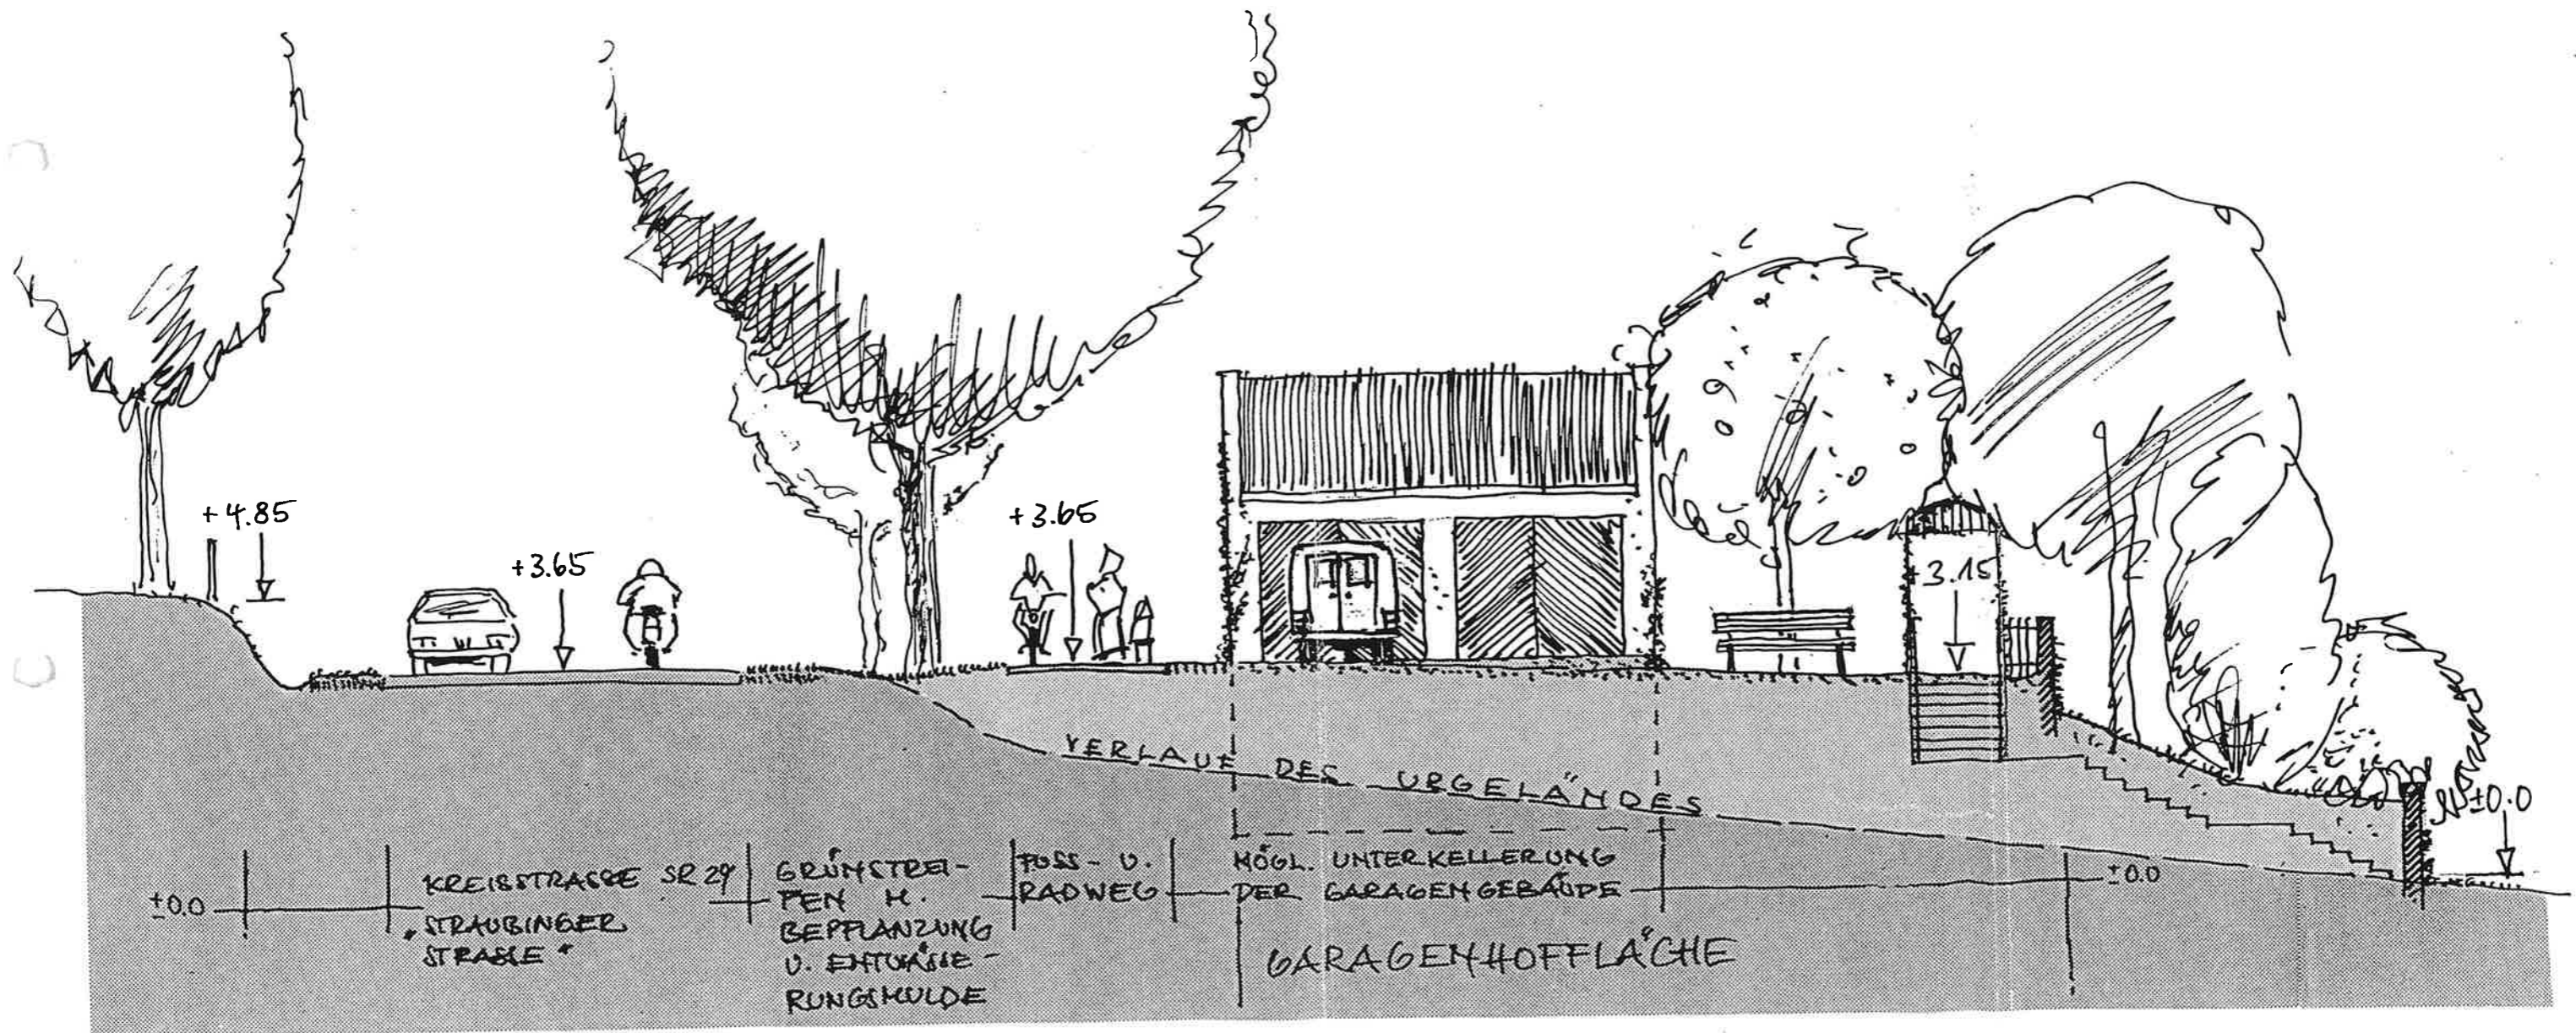 +4.85
+3.65
+3.65
+3.15
VERLAUF DES URGELÄNDES
±0.0
±0.0
KREISSTRASSE SR 29
"STRAUBINGER
STRASSE"
GRÜNSTREI-
FEN M.
BEPFLANZUNG
U. ENTWÄSSE-
RUNGSMULDE
FUSS- U.
RADWEG
MÖGL. UNTERKELLERUNG
DER GARAGENGEBÄUDE
±0.0
GARAGENHOFFLÄCHE